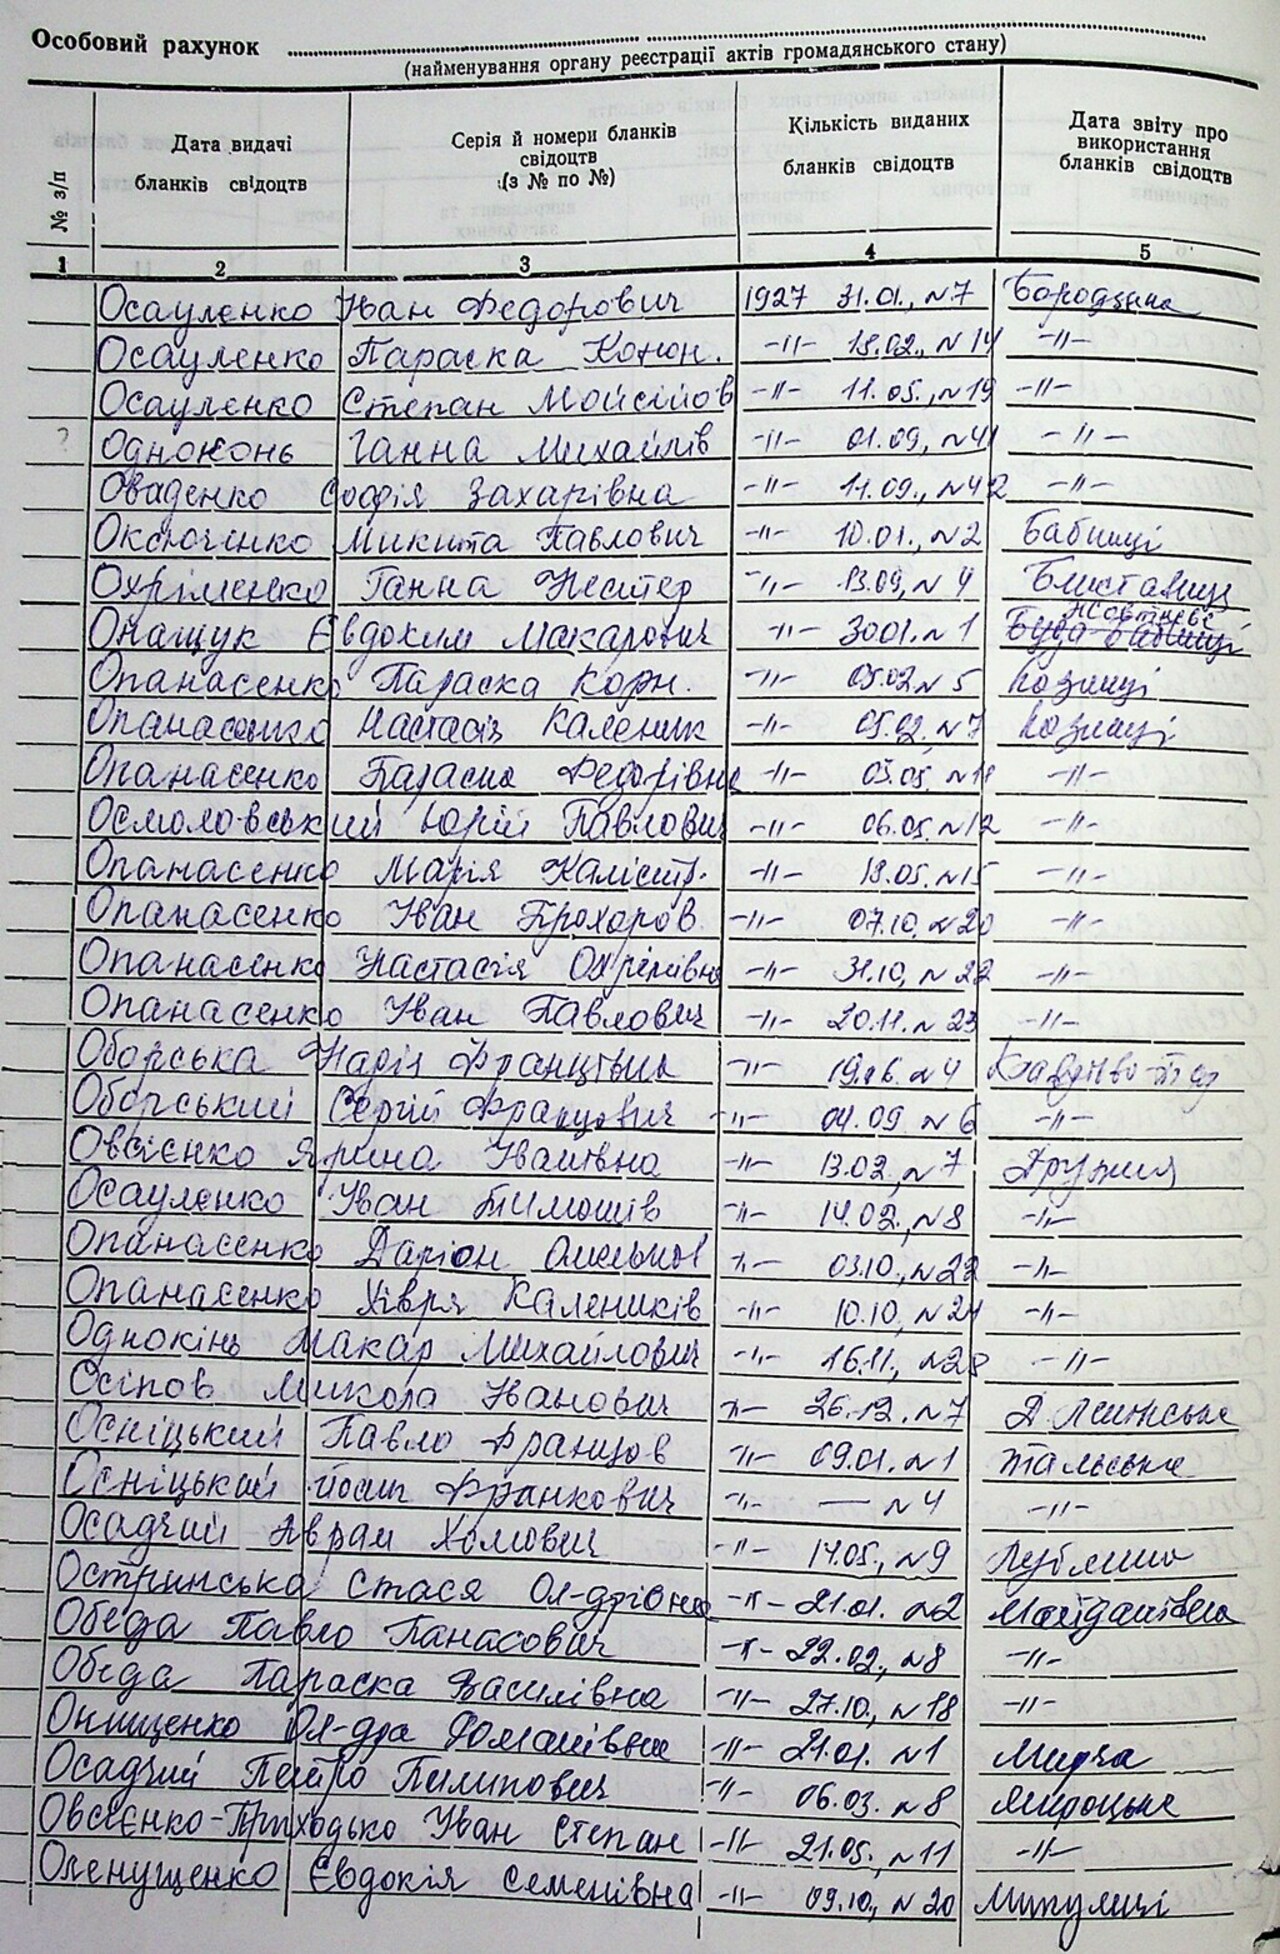 Особовий рахунок
(найменування органу реєстрації актів громадянського стану)
№ з/п Дата видачі бланків свідоцтв Серія й номери бланків свідоцтв (з № по №) Кількість виданих бланків свідоцтв Дата звіту про використання бланків свідоцтв
1 2 3 4 5
Осауленко Іван Федорович 1927 31.01., №7 Бородянка
Осауленко Параска Конон. -"- 18.02., №14 -"-
Осауленко Степан Мойсійов -"- 11.05., №19 -"-
? Одноконь Ганна Михайлів -"- 01.09., №41 -"-
Оваденко Софія Захарівна -"- 11.09., №42 -"-
Оксюченко Микита Павлович -"- 10.01., №2 Бабинці
Охріменко Ганна Нестер -"- 13.09, №4 Блиставиця
Онащук Євдохим Макарович -"- 30.01. №1
Опанасенко Параска Корн. -"- 05.02 №5 Козинці
Опанасенко Настасія Каленик -"- 05.02. №7 Козинці
Опанасенко Параска Федорівна -"- 03.05. №11 -"-
Осмоловський Юрій Павлович -"- 06.05. №12 -"-
Опанасенко Марія Калістр. -"- 18.05. №15 -"-
Опанасенко Іван Прохоров. -"- 07.10. №20 -"-
Опанасенко Настасія Охрімівна -"- 31.10, №22 -"-
Опанасенко Іван Павлович -"- 20.11. №23 -"-
Оборська Надія Францівна -"- №4
Оборський Сергій Францович -"- 04.09. №6 -"-
Овсієнко Ярина Іванівна -"- 13.02., №7 Дружня
Осауленко Іван Тимошів -"- 14.02., №8 -"-
Опанасенко Даріон Омельков -"- 03.10., №22 -"-
Опанасенко Хівря Калеників -"- 10.10, №24 -"-
Однокінь Макар Михайлович -"- 16.11., №28 -"-
Осіпов Микола Іванович -"- 26.12. №7
Осніцький Павло Францов -"- 09.01. №1 Тальське
Осніцький Йосип Франкович -"- — №4 -"-
Осадчий Аврам Хомович -"- 14.05., №9
Остринська Стася Ол-дрівна -"- 21.01. №2 Майданівка
Обеда Павло Панасович -"- 22.02., №8 -"-
Обеда Параска Василівна -"- 27.10., №18 -"-
Онищенко Ол-дра Романівна -"- 21.01. №1 Мирча
Осадчий Петро Пилипович -"- 06.03. №8 Мироцьке
Овсієнко-Приходько Іван Степан -"- 21.05., №11 -"-
Оленущенко Євдокія Семенівна -"- 09.10., №20 Микуличі